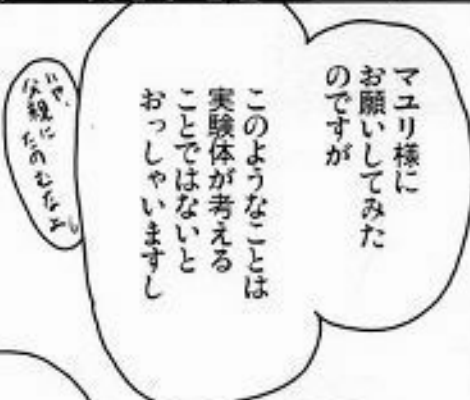 マユリ様に
お願いしてみた
のですが
このようなことは
実験体が考える
ことではないと
おっしゃいますし
いや、
父親に
たのむなよ